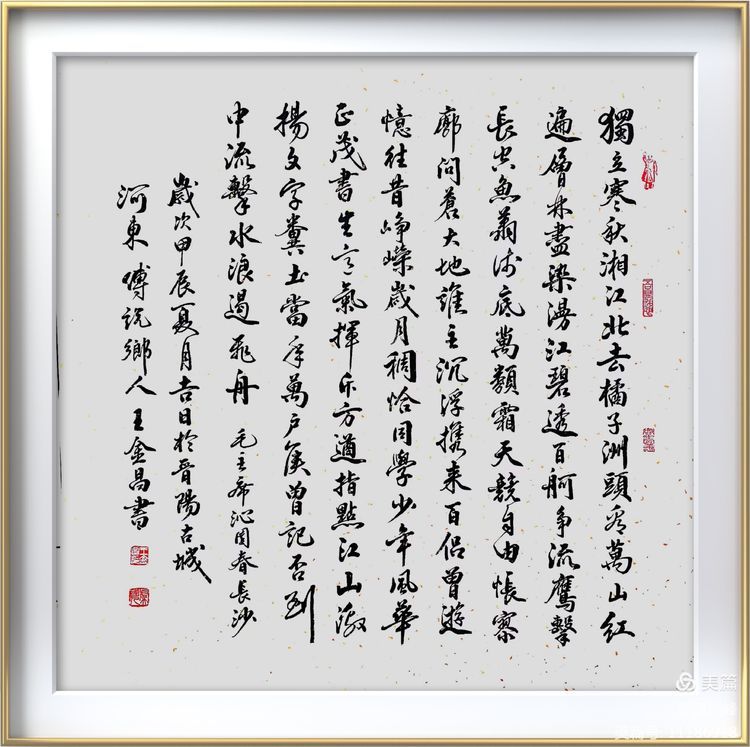 獨立寒秋湘江北去橘子洲頭看萬山紅
遍層林盡染漫江碧透百舸爭流鷹擊
長空魚翔淺底萬類霜天競自由悵寥
廓問蒼大地誰主沉浮携来百侣曾遊
憶往昔崢嶸歲月稠恰同學少年風華
正茂書生意氣揮斥方遒指點江山激
揚文字糞土當年萬户侯曾記否到
中流擊水浪遏飛舟 毛主席沁园春長沙
歲次甲辰夏月吉日於晋陽古城
河東傅説鄉人王金昌書
美篇